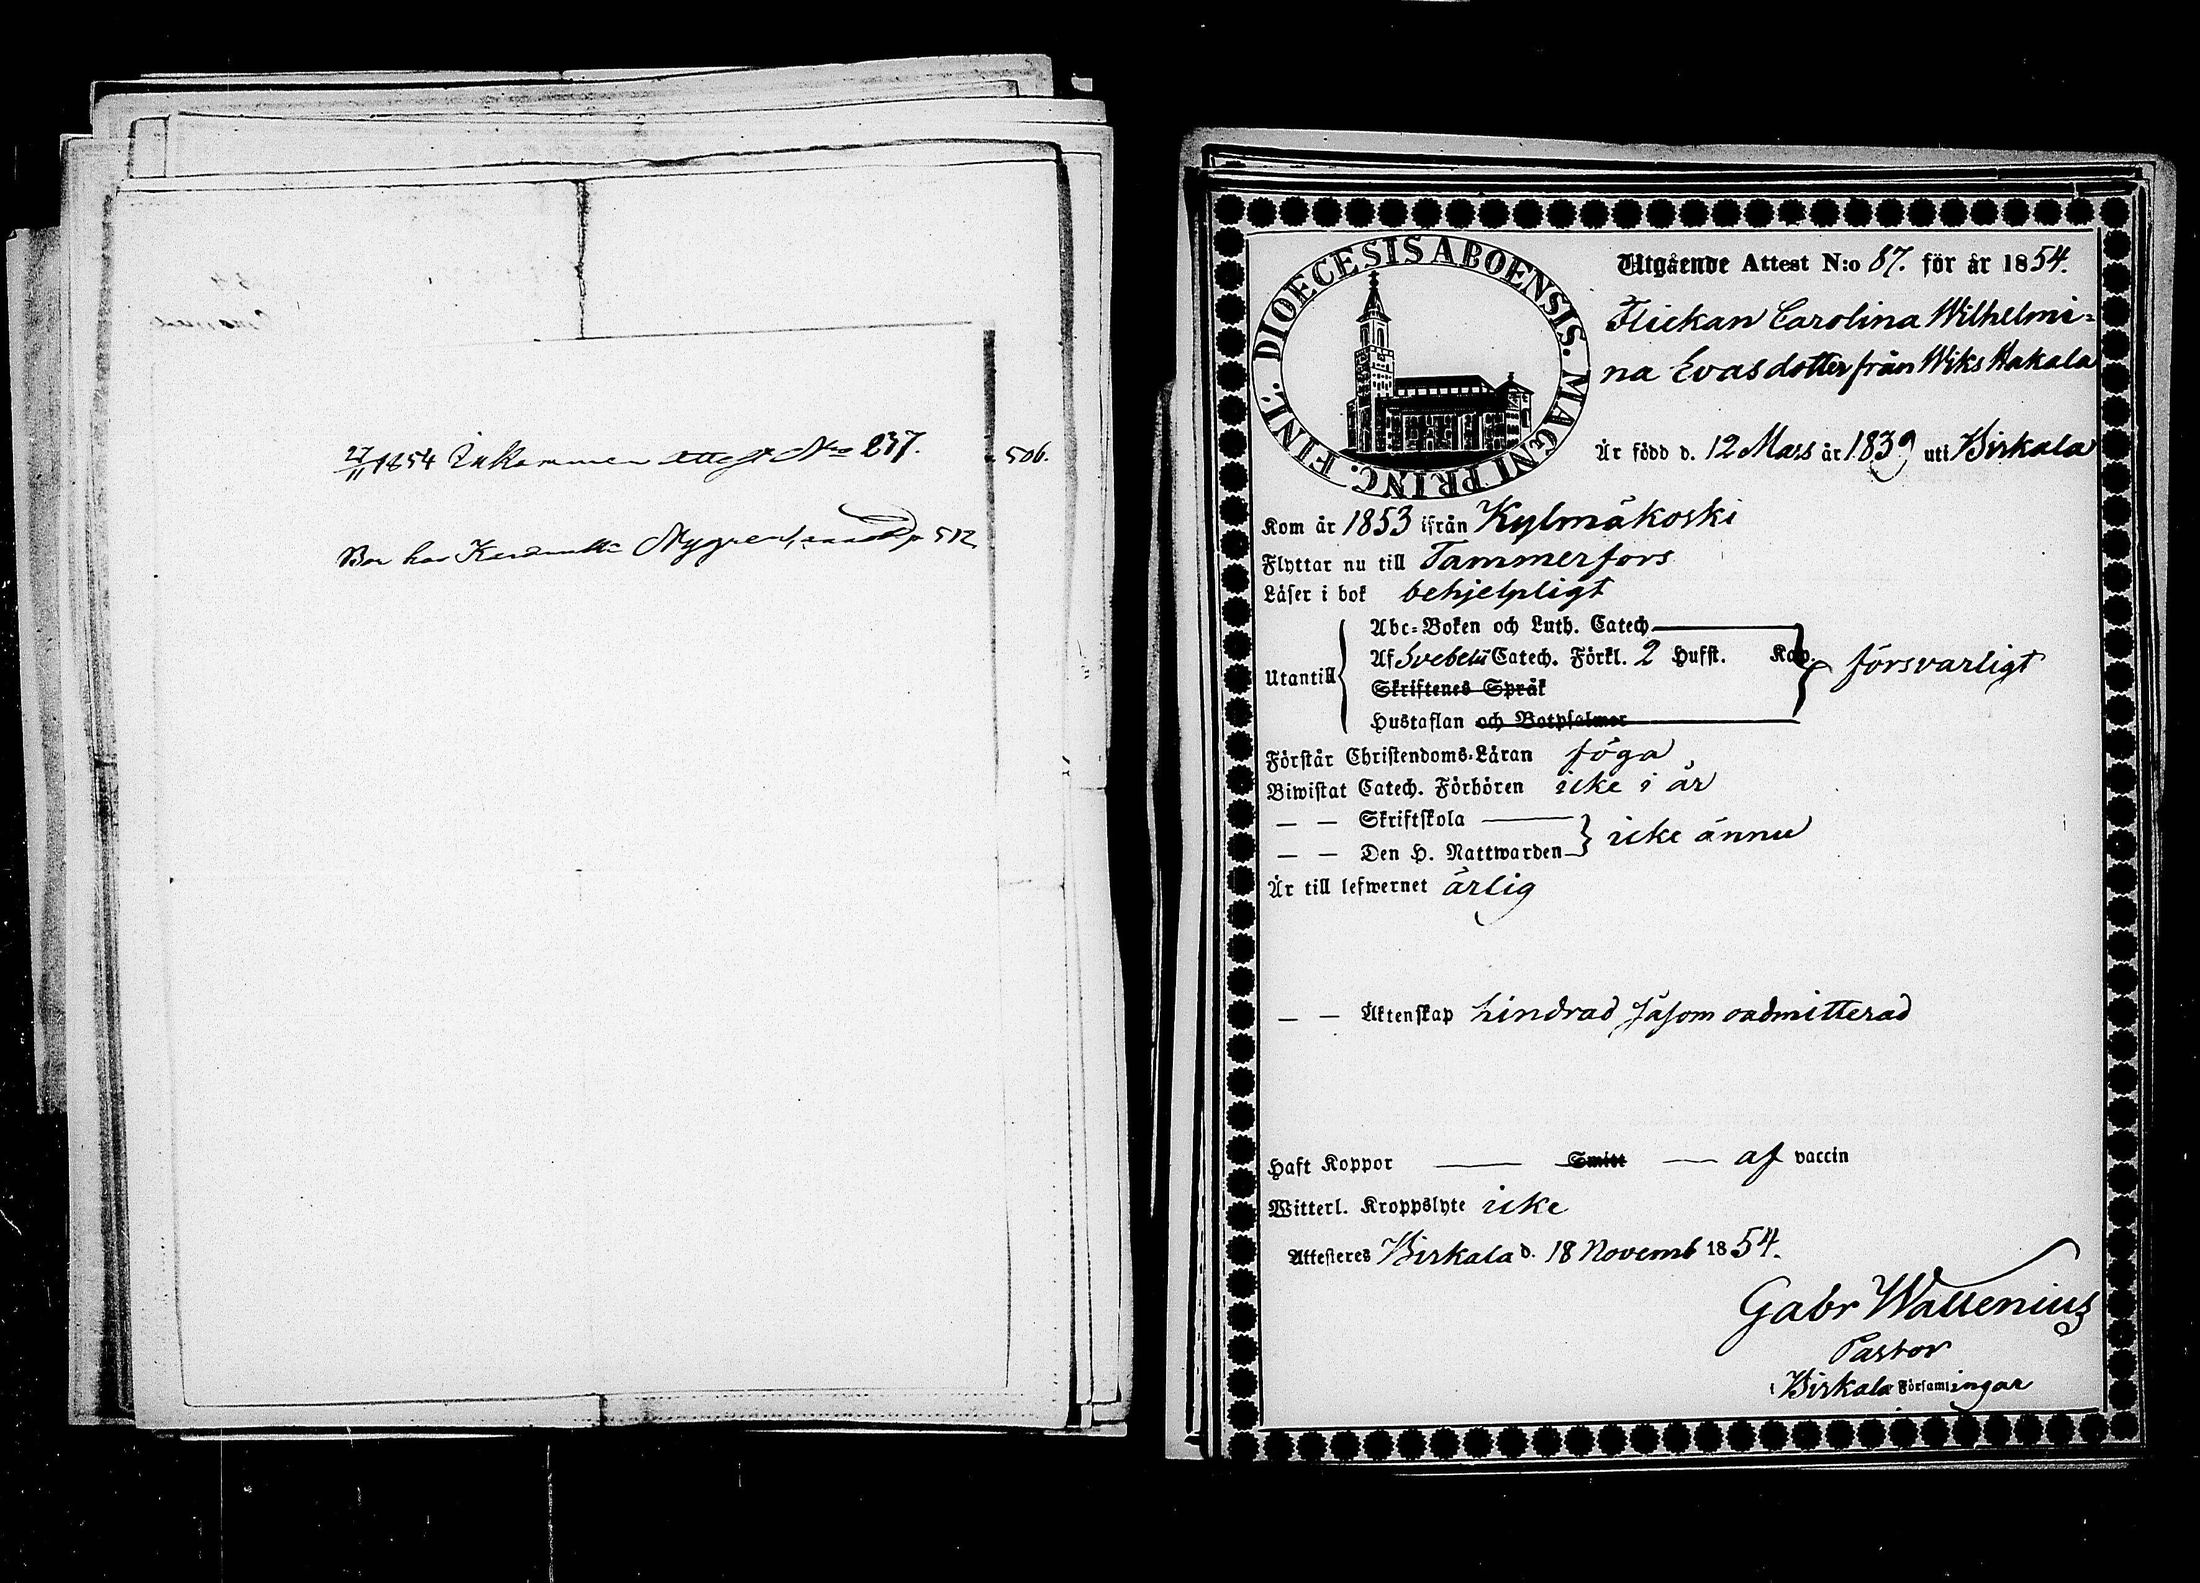 27/11 1854 Inkommen Attest No 237.
506.
Bor hos Nygren p 512
DIOECESIS ABOENSIS. MAGNI PRINC. FINL.
Utgående Attest N:o 87. för år 1854.
Flickan Carolina Wilhelmi=
na Evasdotter från Wiks Hakala
Är född d. 12 Mars år 1839 uti Birkala
Kom år 1853 ifrån Kylmäkoski
Flyttar nu till Tammerfors
Läser i bok behjelpligt
Utantill
Abc-Boken och Luth. Catech.
Af Svebelii Catech. Förkl. 2 Hufst. Kap.
Skriftenes Språk
Hustaflan och Botpsalmer
försvarligt
Förstår Christendoms-Läran föga
Biwistat Catech. Förhören icke i år
— — Skriftskola
— — Den H. Nattwarden
icke ännu
Är till lefwernet ärlig
— — Äktenskap hindrad såsom oadmitterad
Haft Koppor — Smitt — af vaccin
Witterl. Kroppslyte icke
Attesteres Birkala d. 18 Novemb 1854.
Gabr Wallenius
Pastor
i Birkala Församlingar